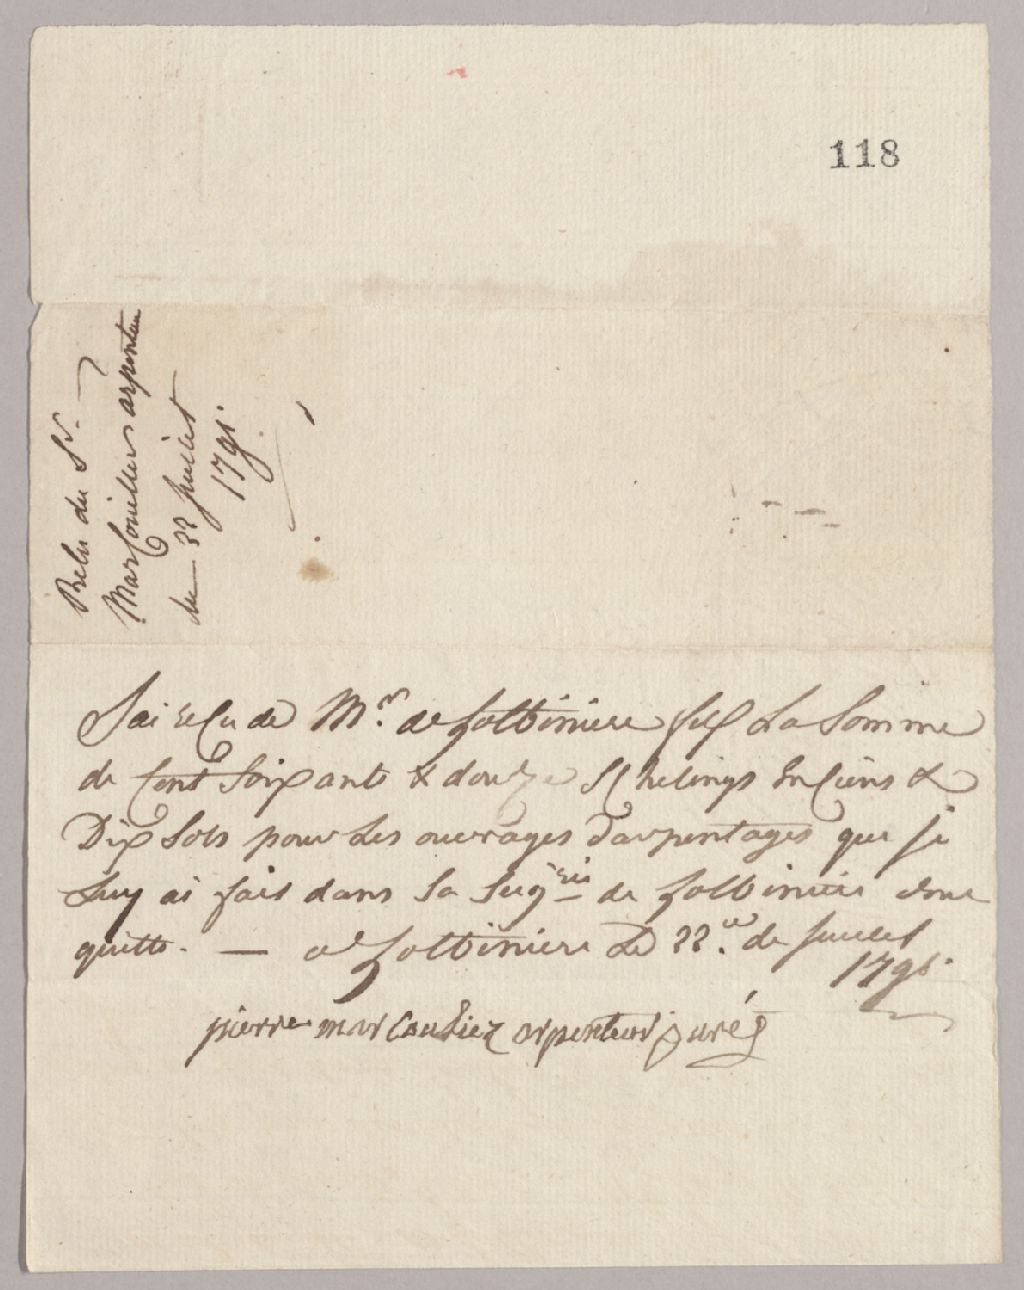 118
Relu du Sr.
Marcouillier arpenteur
du 22 Juillet
1791.
J'ai recu de Mr. de Lotbiniere fils La Somme
de Cent Soixante & douze Schelings enciens &
Dix Sols pour Les ouvrages d'arpentages que je
Luy ai fait dans Sa Seigrie de Lotbiniere dont
quitte. — a Lotbiniere Le 22e. de Juillet
1791.
pierre marcouliez arpenteur juréz